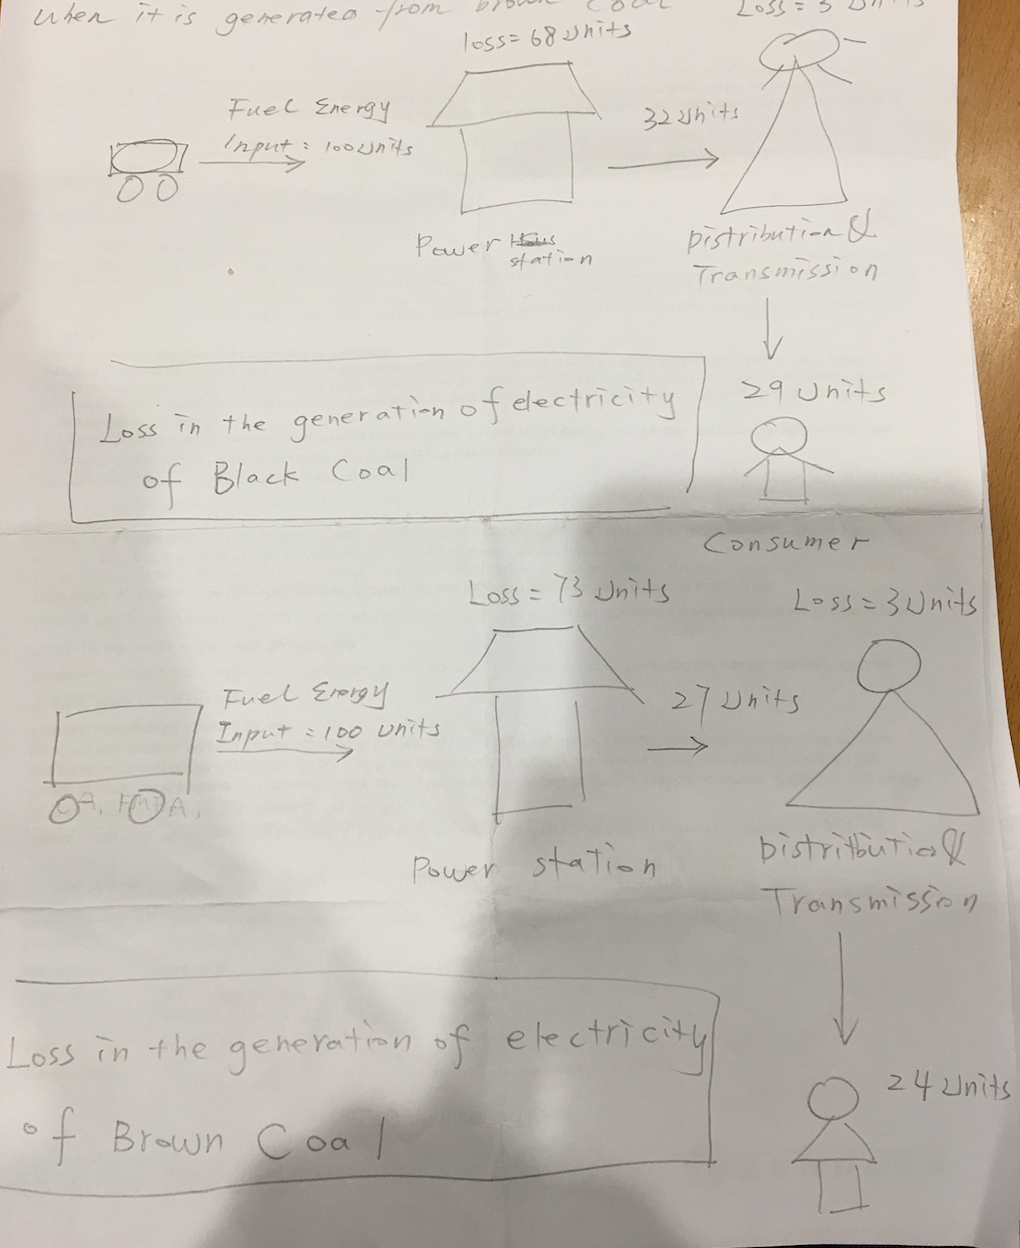 When it is generated from brown coal
Loss = 3 Units
loss = 68 Units
Fuel Energy
Input = 100 Units
32 Units
Power
station
Distribution &
Transmission
29 Units
Loss in the generation of electricity
of Black Coal
Consumer
Loss = 73 Units
Loss = 3 Units
Fuel Energy
Input = 100 Units
27 Units
Power station
Distritbution &
Transmission
Loss in the generation of electricity
of Brown Coal
24 Units